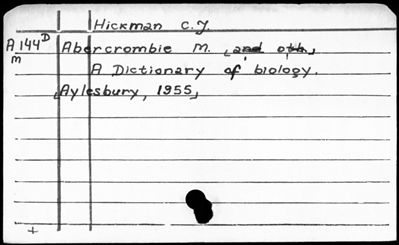 Hickman C.J.
A144D Abercrombie M. [and oth.]
m A Dictionary of biology.
[Aylesbury, 1955]
+